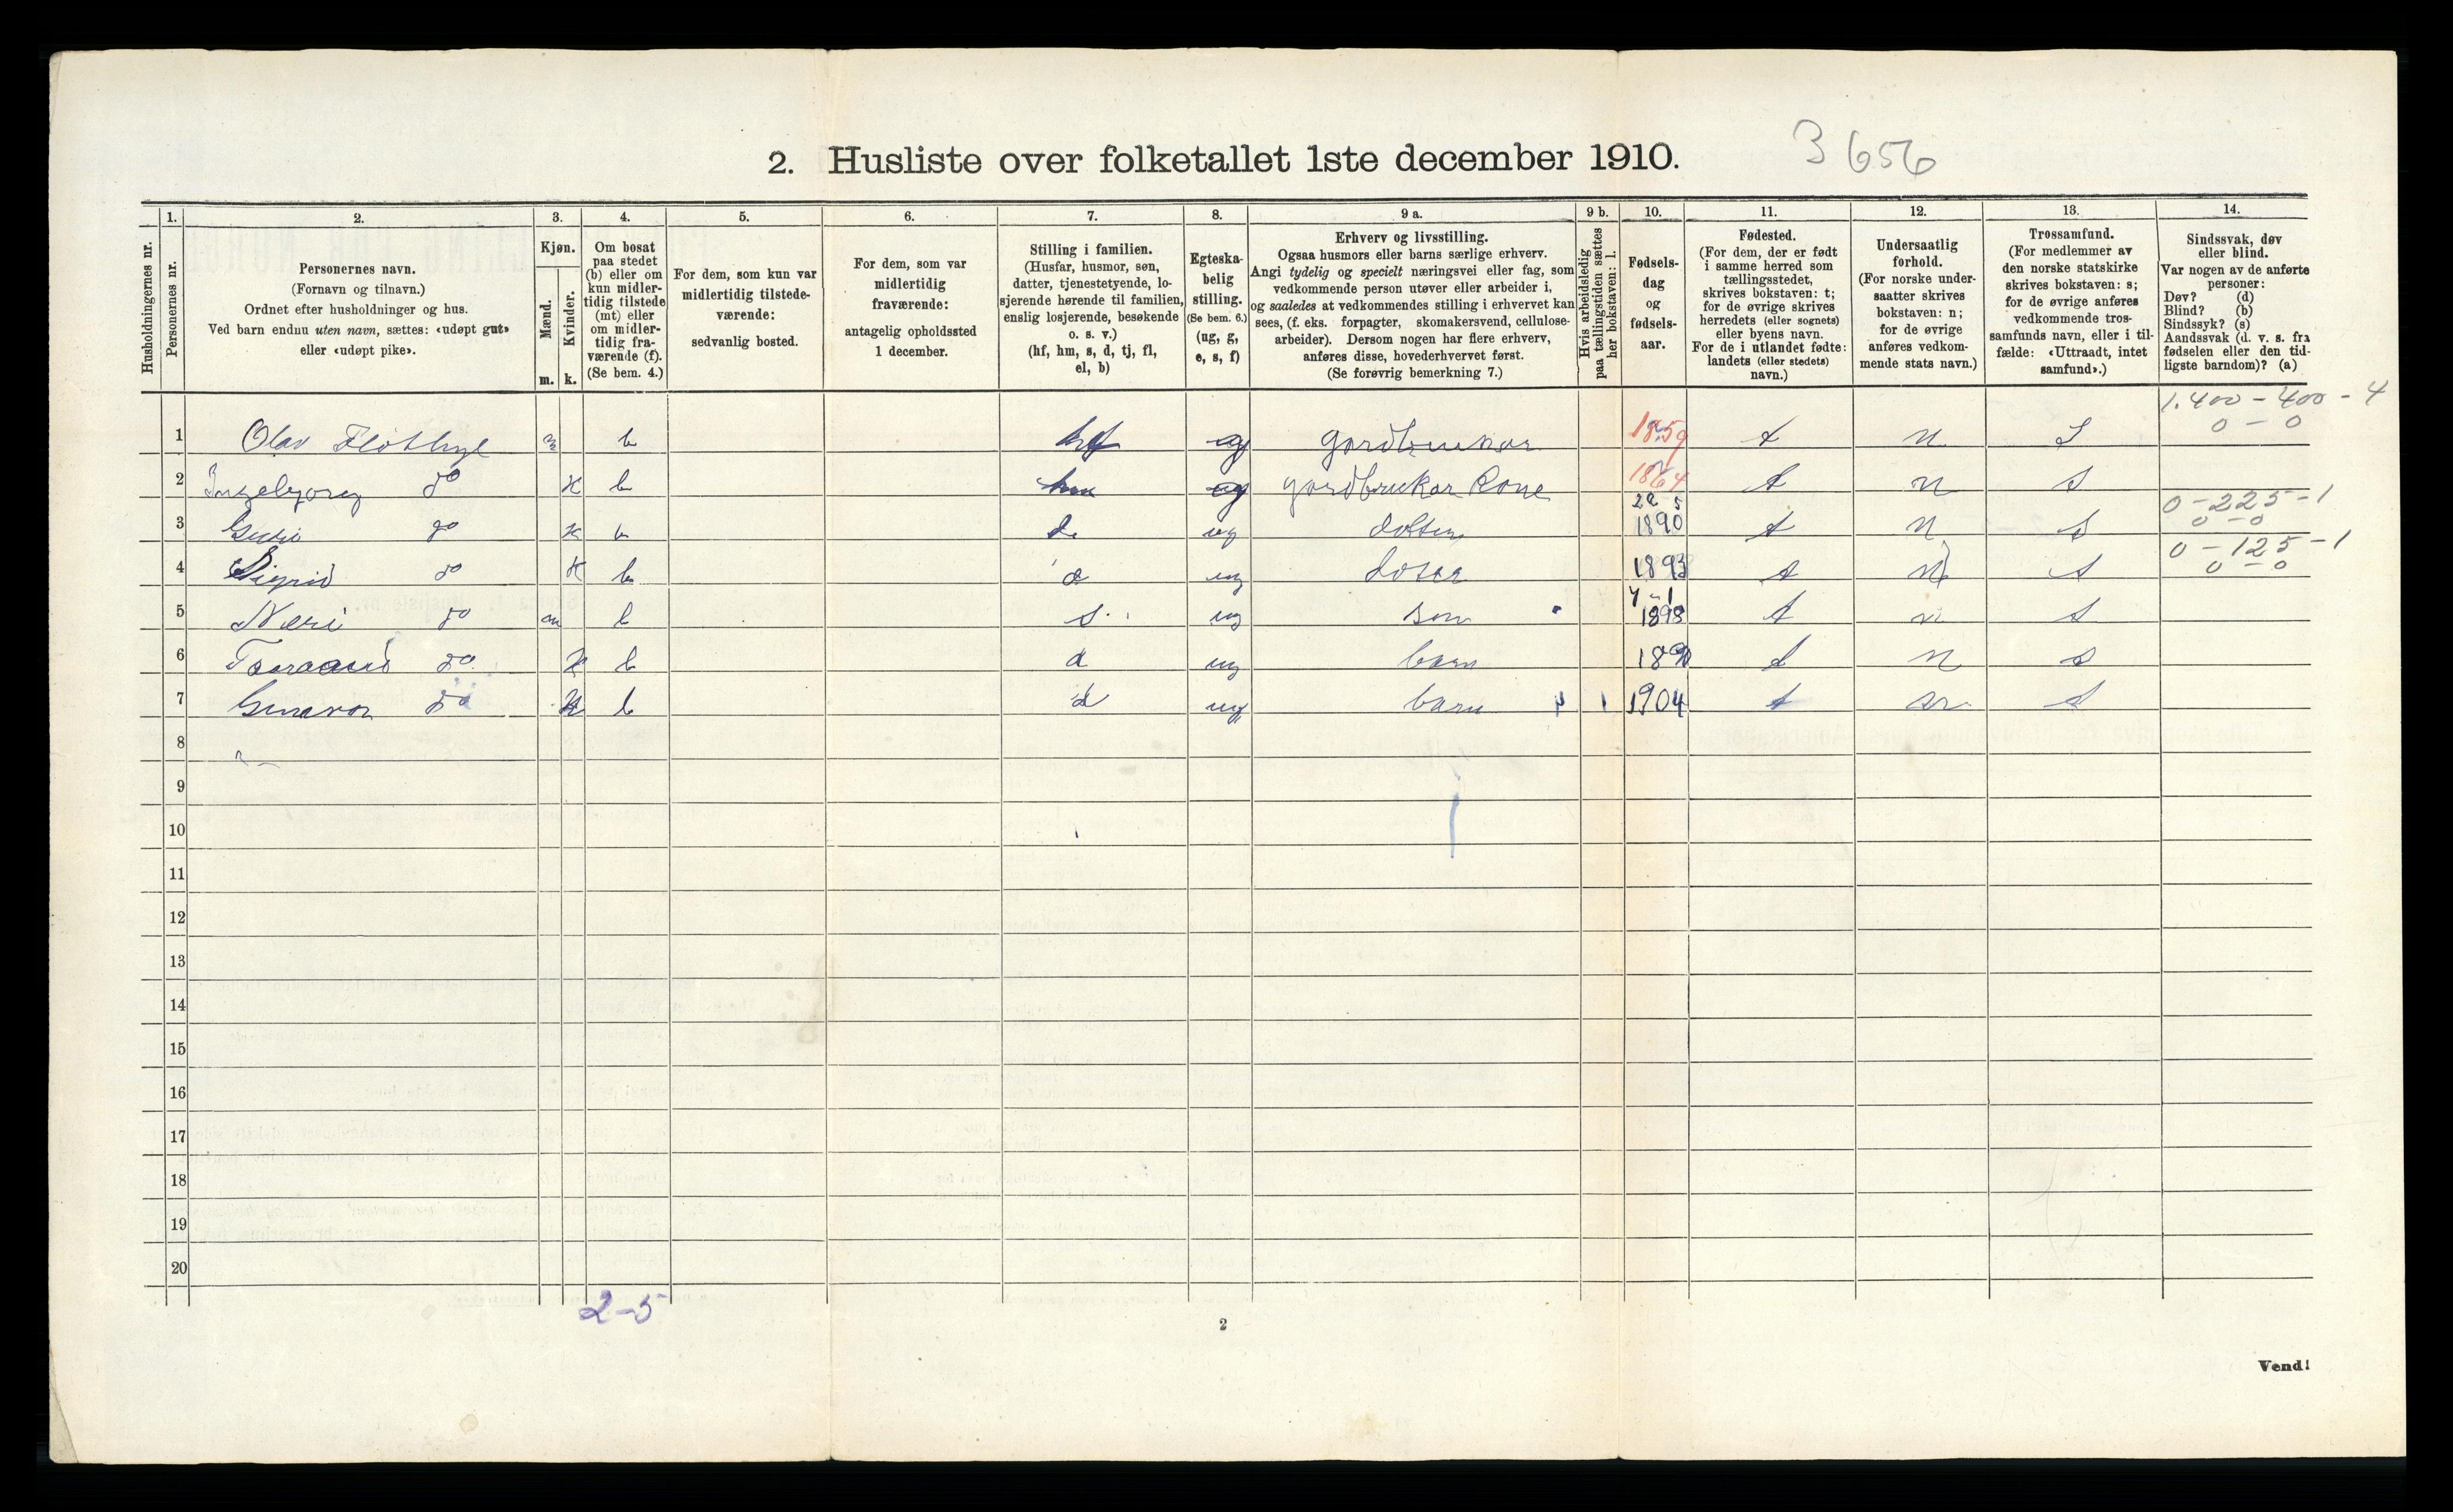 2. Husliste over folketallet 1ste december 1910. 3 656
Husholdningernes nr.
1. Personernes nr.
2. Personernes navn.
(Fornavn og tilnavn.)
Ordnet efter husholdninger og hus.
Ved barn endnu uten navn, sættes: «udøpt gut»
eller «udøpt pike».
3. Kjøn.
Mænd. Kvinder.
m. k.
4. Om bosat
paa stedet
(b) eller om
kun midler-
tidig tilstede
(mt) eller
om midler-
tidig fra-
værende (f).
(Se bem. 4.)
5. For dem, som kun var
midlertidig tilstede-
værende:
sedvanlig bosted.
6. For dem, som var
midlertidig
fraværende:
antagelig opholdssted
1 december.
7. Stilling i familien.
(Husfar, husmor, søn,
datter, tjenestetyende, lo-
sjerende hørende til familien,
enslig losjerende, besøkende
o. s. v.)
(hf, hm, s, d, tj, fl,
el, b)
8. Egteska-
belig
stilling.
(Se bem. 6.)
(ug, g,
e, s, f)
9 a. Erhverv og livsstilling.
Ogsaa husmors eller barns særlige erhverv.
Angi tydelig og specielt næringsvei eller fag, som
vedkommende person utøver eller arbeider i,
og saaledes at vedkommendes stilling i erhvervet kan
sees, (f. eks. forpagter, skomakersvend, cellulose-
arbeider). Dersom nogen har flere erhverv,
anføres disse, hovederhvervet først.
(Se forøvrig bemerkning 7.)
9 b. Hvis arbeidsledig
paa tællingstiden sættes
her bokstaven: l.
10. Fødsels-
dag
og
fødsels-
aar.
11. Fødested.
(For dem, der er født
i samme herred som
tællingsstedet,
skrives bokstaven: t;
for de øvrige skrives
herredets (eller sognets)
eller byens navn.
For de i utlandet fødte:
landets (eller stedets)
navn.)
12. Undersaatlig
forhold.
(For norske under-
saatter skrives
bokstaven: n;
for de øvrige
anføres vedkom-
mende stats navn.)
13. Trossamfund.
(For medlemmer av
den norske statskirke
skrives bokstaven: s;
for de øvrige anføres
vedkommende tros-
samfunds navn, eller i til-
fælde: «Uttraadt, intet
samfund».)
14. Sindssvak, døv
eller blind.
Var nogen av de anførte
personer:
Døv? (d)
Blind? (b)
Sindssyk? (s)
Aandssvak (d. v. s. fra
fødselen eller den tid-
ligste barndom)? (a)
1.400 - 400 - 4
0 - 0
1 Olav m b hf g gardbrukar 1859 t n S
2 Ingebjorg do k b hm g gardbrukar Kone 1864 t n s
3 do k b d ug 22 5 1890 t n s 0 - 225 - 1
0 - 0
4 Sigrid do k b d ug 1893 t n s 0 - 125 - 1
0 - 0
5 do m b s ug son 1898 t n s
6 do k b d ug barn t n s
7 do k b d ug barn 1904 t s
8
9
10
11
12
13
14
15
16
17
18
19
20
2-5
2
Vend!